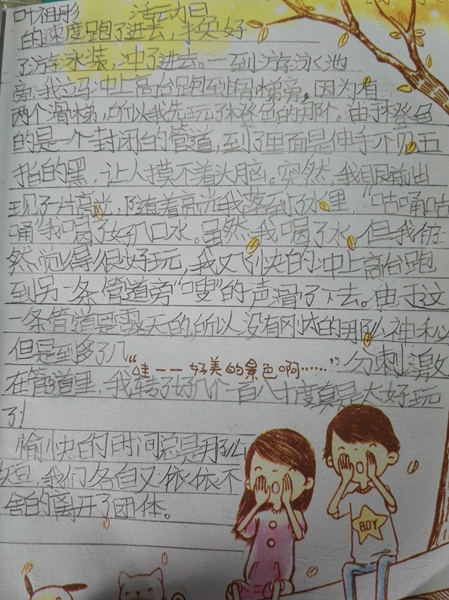 叶祖彤 活动日
的速度跑了进去，换好
了游泳装，冲了进去。一到游泳池
离，我立马冲上高台跑到滑梯旁。因为有
两个滑梯，所以我先玩了橙色的那个，由于橙色
的是一个封闭的管道，到了里面是伸手不见五
指的黑，让人摸不着头脑。突然，我眼前出
现了片亮光，随着亮光我落到了水里，“咕嗵咕
嗵”我喝了好几口水。虽然，我喝了水，但我仍
然觉得很好玩，我又飞快的冲上高台跑
到另一条管道旁“嗖”的声滑了下去。由于这
一条管道是露天的，所以没有刚才的那么神秘
但是到多了几分刺激
“哇——好美的景色啊……”
在管道里，我转了好几个一百八十度真是太好玩
了！
愉快的时间总是那么
短，我们各自又依依不
舍的离开了团体。
BOY